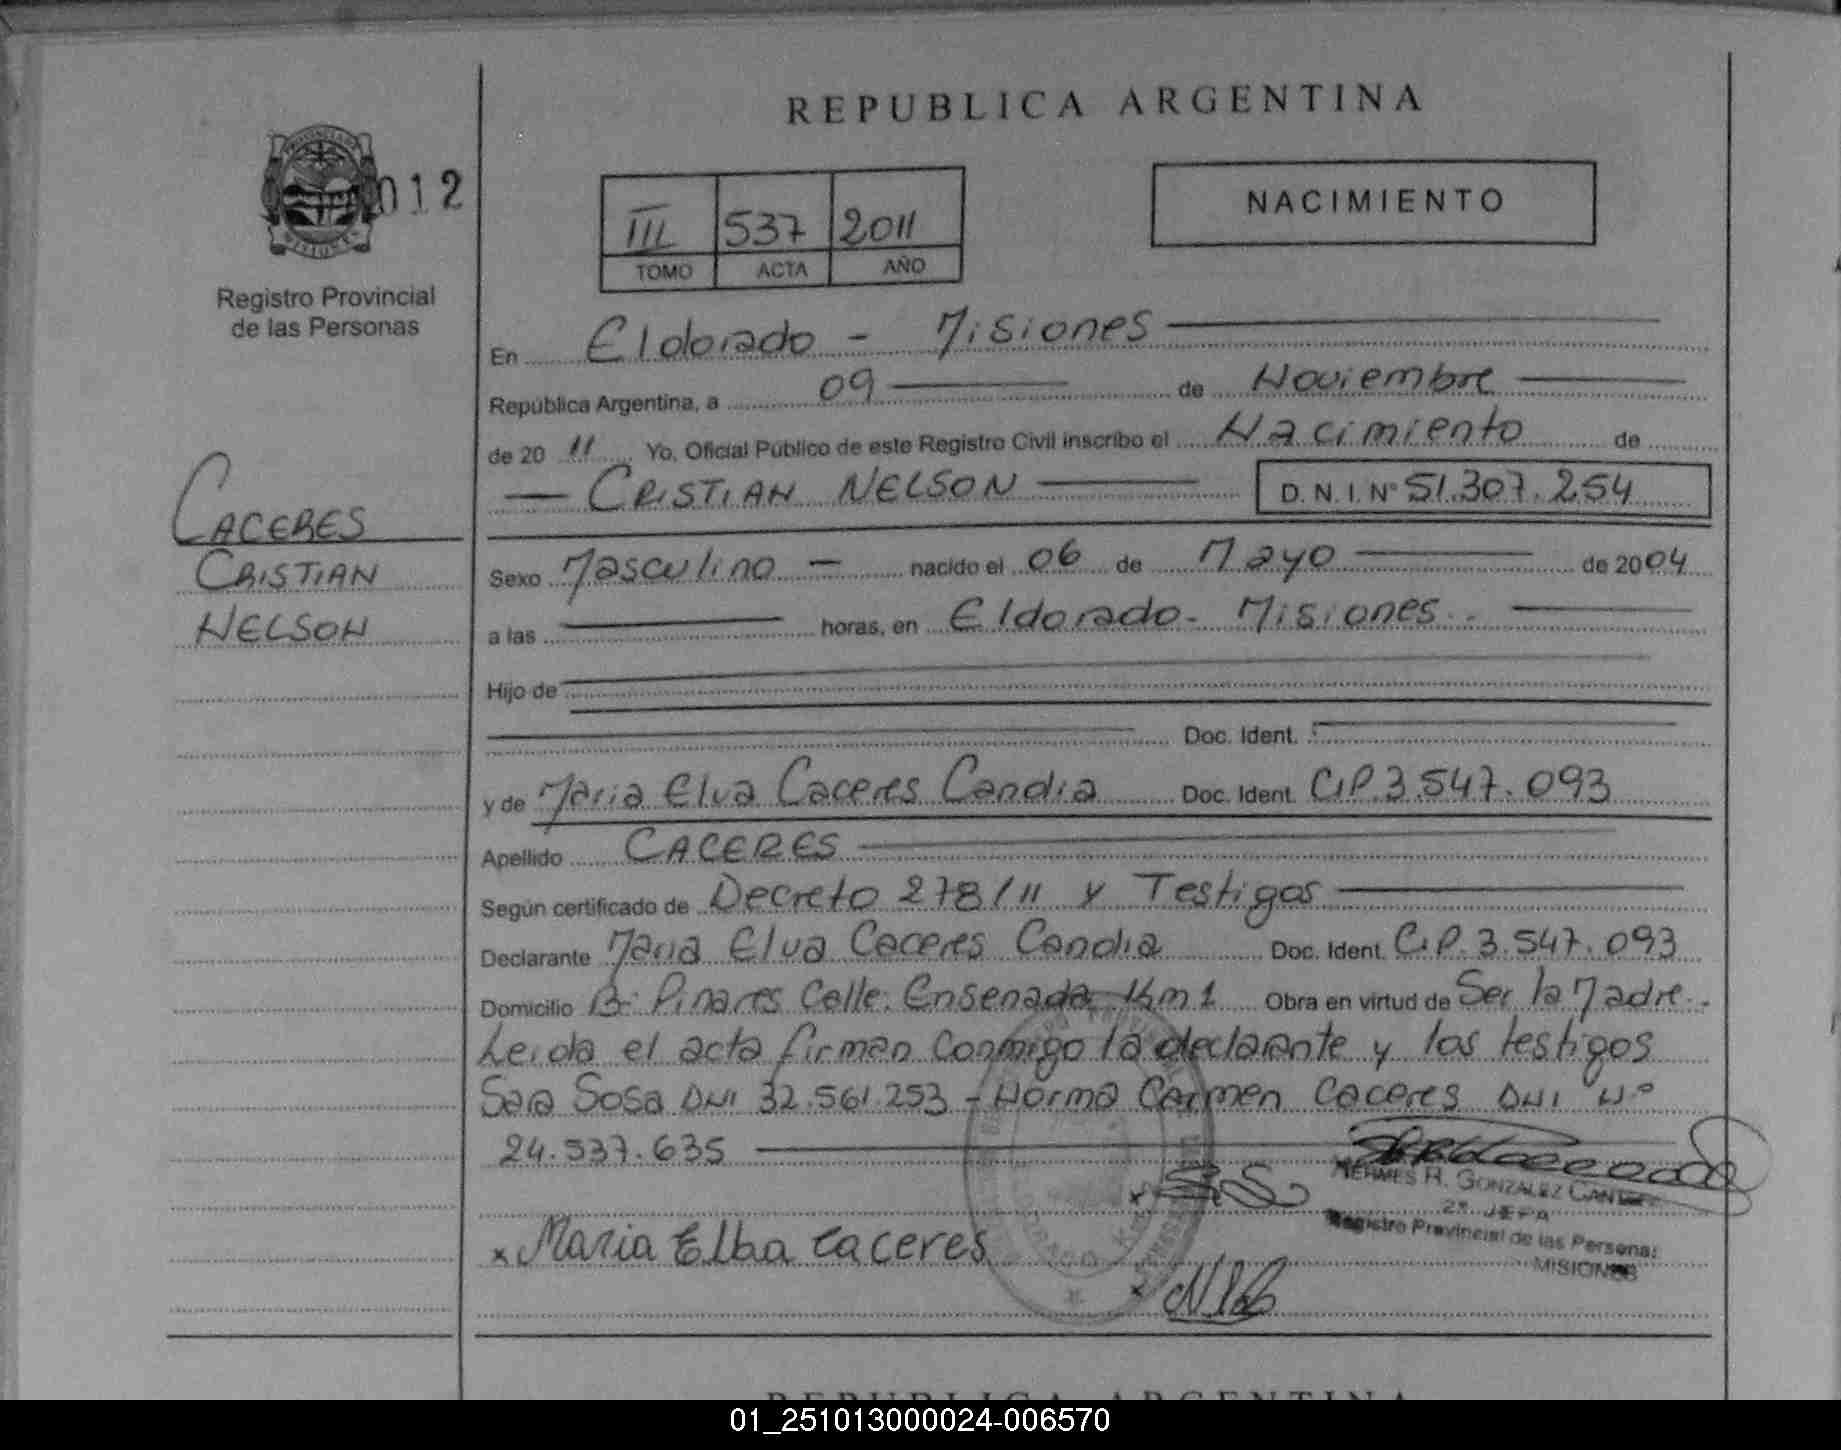 REPUBLICA ARGENTINA
012
NACIMIENTO
III 537 2011
TOMO ACTA AÑO
Registro Provincial
de las Personas
En Eldorado - Misiones
República Argentina, a 09 de Noviembre
de 20 11 Yo, Oficial Público de este Registro Civil inscribo el Nacimiento de
CRISTIAN NELSON D.N.I. Nº 51.307.254
CACERES
CRISTIAN
NELSON
Sexo Masculino - nacido el 06 de Mayo de 2004
a las horas, en Eldorado - Misiones.
Hijo de
Doc. Ident.
y de Maria Elva Caceres Candia Doc. Ident. CIP. 3.547.093
Apellido CACERES
Según certificado de Decreto 278/11 y Testigos
Declarante Maria Elva Caceres Candia Doc. Ident. CIP. 3.547.093
Domicilio Bº Pinares Calle: Ensenada Km 1 Obra en virtud de Ser la Madre.
Leida el acta firman conmigo la declarante y los testigos
Sara Sosa DNI 32.561.253 - Norma Carmen Caceres DNI Nº
24.537.635
HERMES R. GONZALEZ
2º JEFA
Registro Provincial de las Personas
MISIONES
x Maria Elba Caceres
REPUBLICA ARGENTINA
01_251013000024-006570